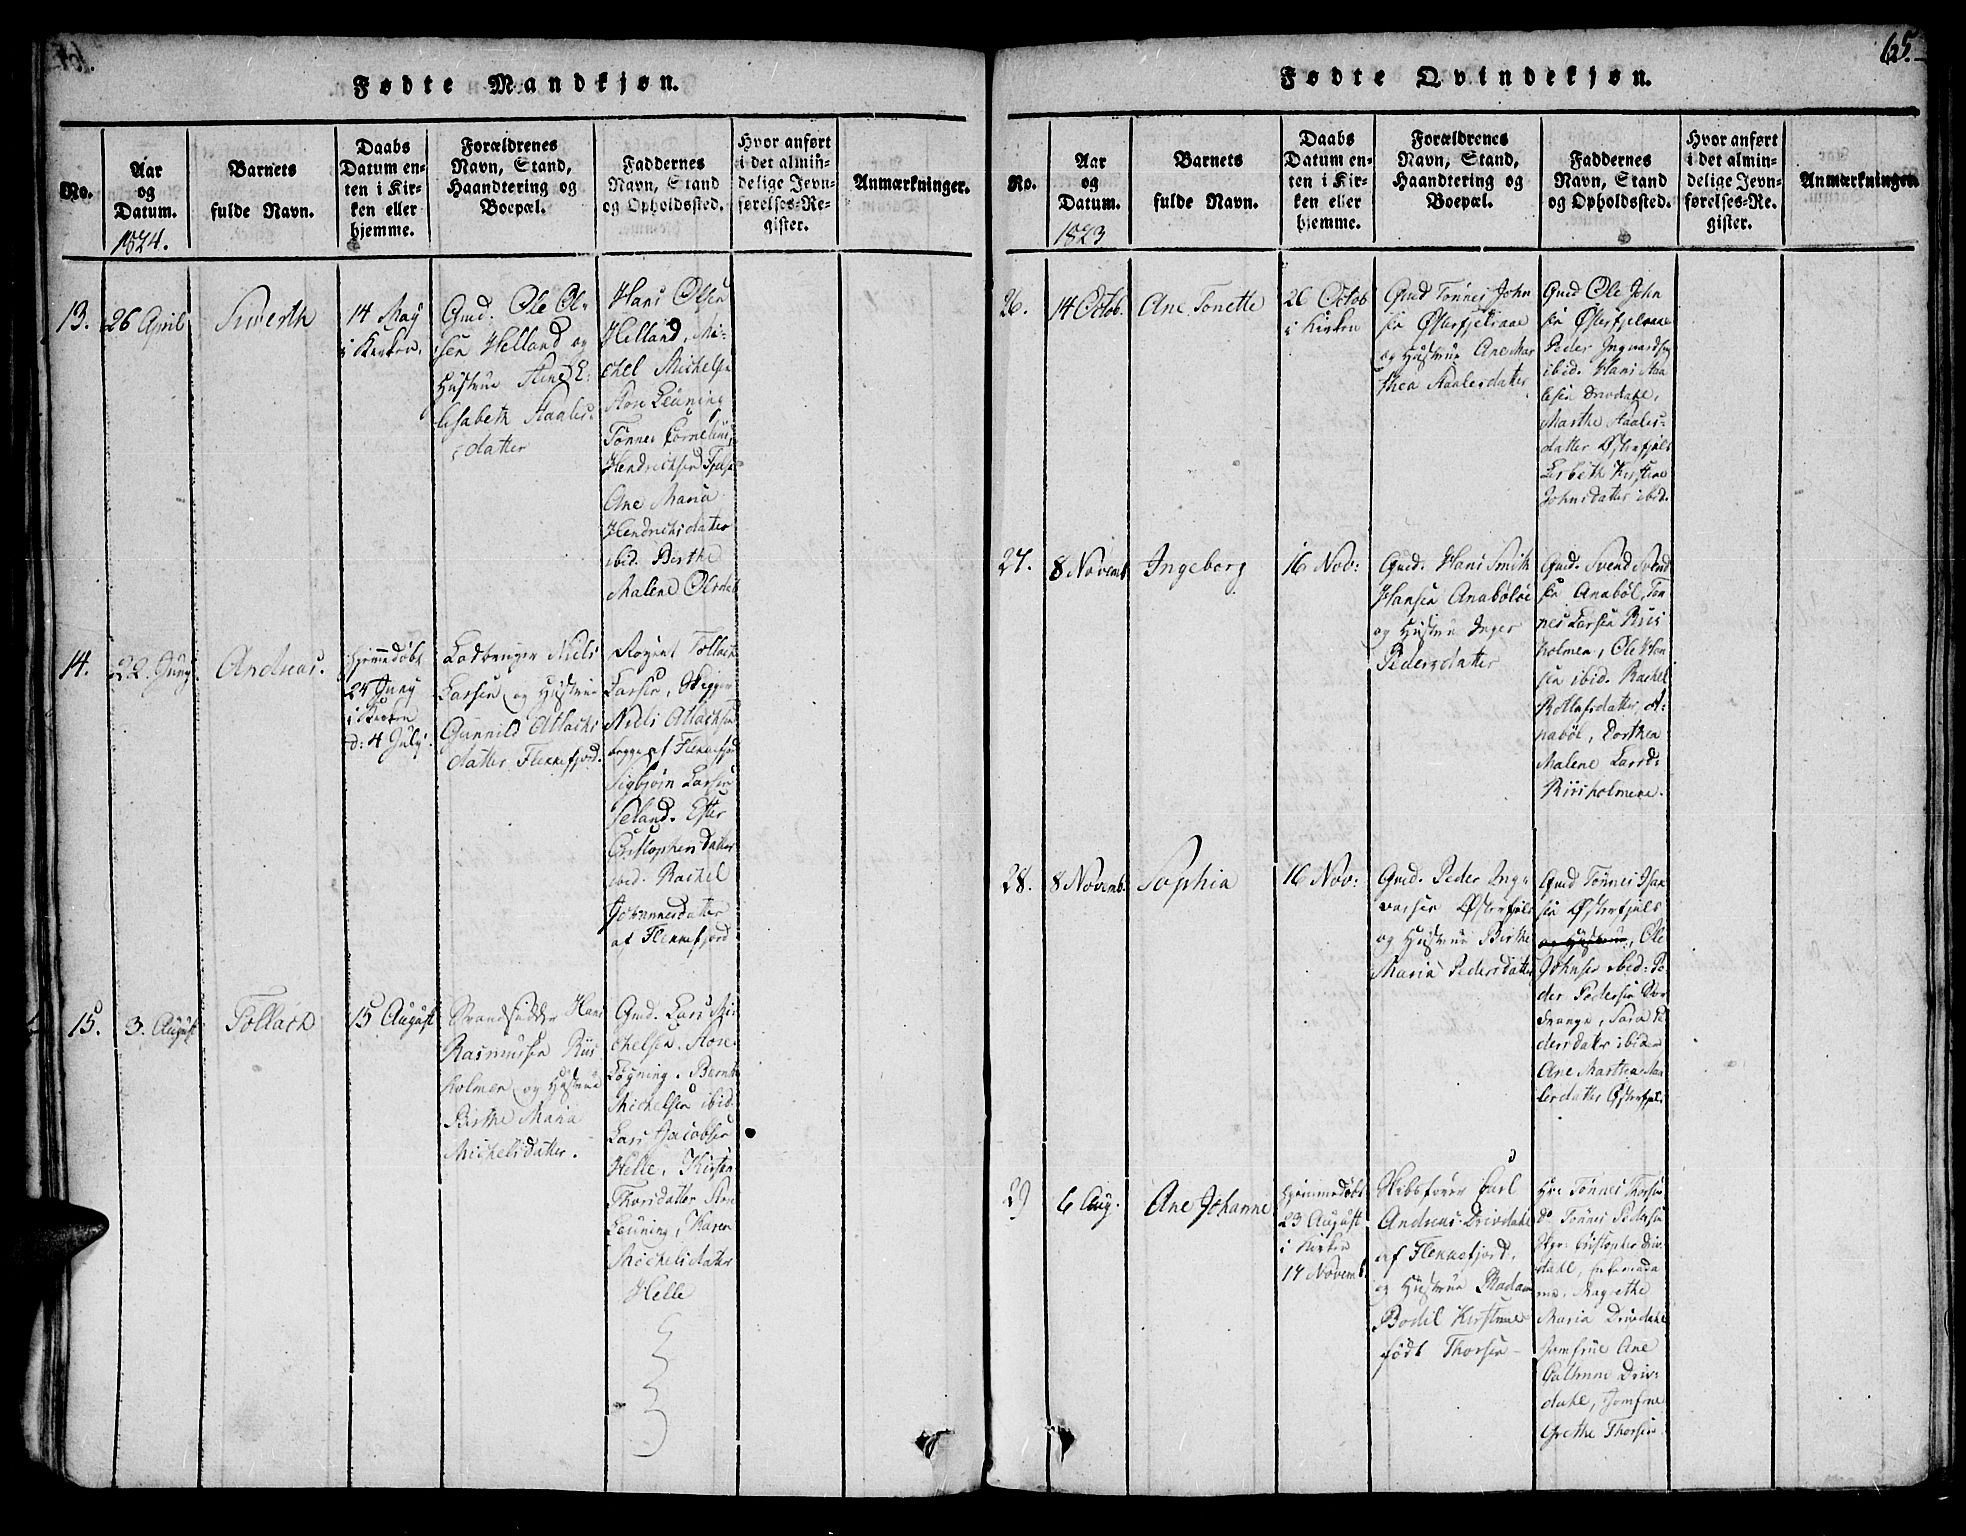 Fødte Mandkjøn.
No.
Aar
og
Datum.
1824.
Barnets
fulde Navn.
Daabs
Datum en-
ten i Kir-
ken eller
hjemme.
Forældrenes
Navn, Stand,
Haandtering og
Boepæl.
Faddernes
Navn, Stand
og Opholdssted.
Hvor anført
i det almin-
delige Jevn-
førelses-Re-
gister.
Anmærkninger.
13.
26 April
Siverth
14 May
i Kirken.
Gmd. Ole Ol-
sen Helland og
Hustrue Stine E-
lisabeth Staales-
datter
Hans Olsen
Helland, Mi-
chel Michels:
Store Leuning
Tønnes Cornelius
Hendrichsen
Ane Maria
Hendrichsdatter
ibid. Berthe
Malene Olsdat:
14.
22 Juny
Andreas.
Hjemmedøbt
24 Juny
i Kirken
d: 4 July.
Lodbruger Niels
Larsen og Hustrue
Gunnild Atlachs
datter Flekkefjord.
Tollach
Larsen, Skipper
Niels Atlachsen
begge af Flekkefjord
Sigbjørn Larsen
Seland. Ester
Christophersdatter
ibid. Rachel
Johannesdatter
af Flekkefjord
15.
3. August
Tollach
15 August
Strandsidder Hans
Rasmussen Riis
holmen og Hustrue
Birthe Maria
Michelsdatter.
Gmd. Lars Mi-
chelsen Store
Løgning. Bernt
Michelsen ibid.
Lars Jacobsen
Helle, Kirsten
Thorsdatter Store
Leuning, Karen
Michelsdatter
Helle
65.
Fødte Qvindekjøn.
No.
Aar
og
Datum.
1823
Barnets
fulde Navn.
Daabs
Datum en-
ten i Kir-
ken eller
hjemme.
Forældrenes
Navn, Stand,
Haandtering og
Boepæl.
Faddernes
Navn, Stand
og Opholdssted.
Hvor anført
i det almin-
delige Jevn-
førelses-Re-
gister.
Anmærkninger.
26.
14 Octob.
Ane Tonette
26 Octob
i Kirken
Gmd Tønnes John
sen Østerfjelraae
og Hustrue Ane Mar
thea Staalesdatter
Gmd Ole John
sen Østerfjelraae
Peder Ingvardsen
ibid. Hans Staa
lesen Drivdahl,
Marthe Staales-
datter Østerfjels
Lisbeth Kirstine
Johnsdatter ibid.
27.
8 Novemb.
Ingeborg
16 Nov:
Gmd. Hans Smith
Hansen Anabøløe
og Hustrue Inger
Pedersdatter
Gmd. Svend Svend
sen Anabøl, Tøn
nes Larsen Riis
holmen, Ole Hen
sen ibid. Rachel
Rollafsdatter, A-
nabøl, Dorthea
Malene Larsd:
Riisholmene.
28.
8 Novemb.
Sophia
16 Nov:
Gmd. Peder Ing-
varsen Østerfjels
og Hustrue Birthe
Maria Pedersdatter
Gmd Tønnes Isax
sen Østerfjels
og Hustrue, Ole
Johnsen ibid: Pe-
der Pedersen
Sara Pe
dersdatter ibidem
Ane Marthea Staa
lesdatter Østerfjels
29
6 Aug.
Ane Johanne
Hjemmedøbt
23 August
i Kirken
14 Novemb.
Skibsfører Carl
Andreas Drivdahl
af Flekkefjord.
og Hustrue Madam
Bodil Kirstine
født Thorsen
Hr. Tønnes Thorsen
do Tønnes Pedersen
Skpr: Christopher Driv-
dahl, Enkemada
me. Magrethe
Maria Drivdahl
Jomfrue Ane
Cathrine Driv-
dahl, Jomfrue
Grethe Thorsen.